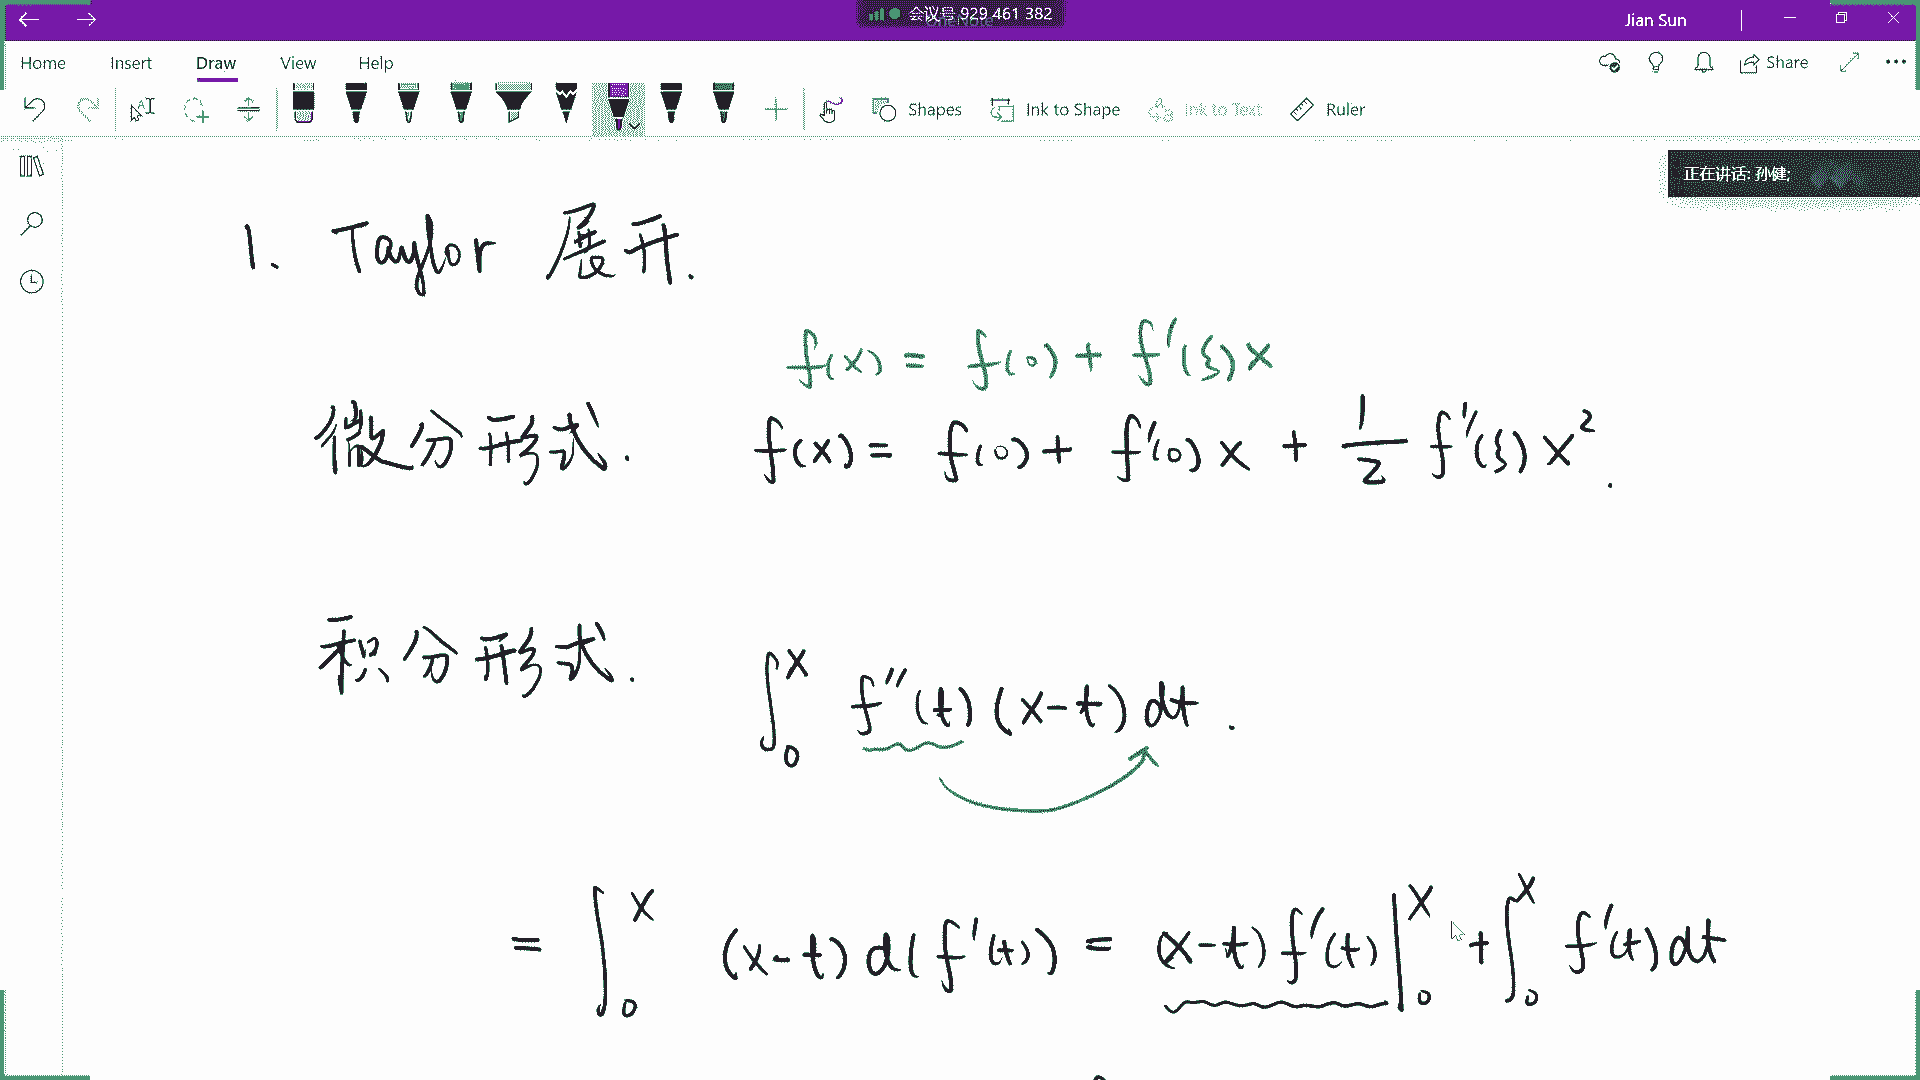 会议号 929 461 382
Jian Sun
Home Insert Draw View Help
Share
Shapes Ink to Shape Ink to Text Ruler
正在讲话: 孙健;
1. Taylor 展开.
f(x) = f(0) + f'(ξ)x
微分形式. f(x) = f(0) + f'(0)x + 1/2 f''(ξ)x².
积分形式. ∫₀ˣ f''(t)(x-t)dt.
= ∫₀ˣ (x-t)d(f'(t)) = (x-t)f'(t)|₀ˣ + ∫₀ˣ f'(t)dt